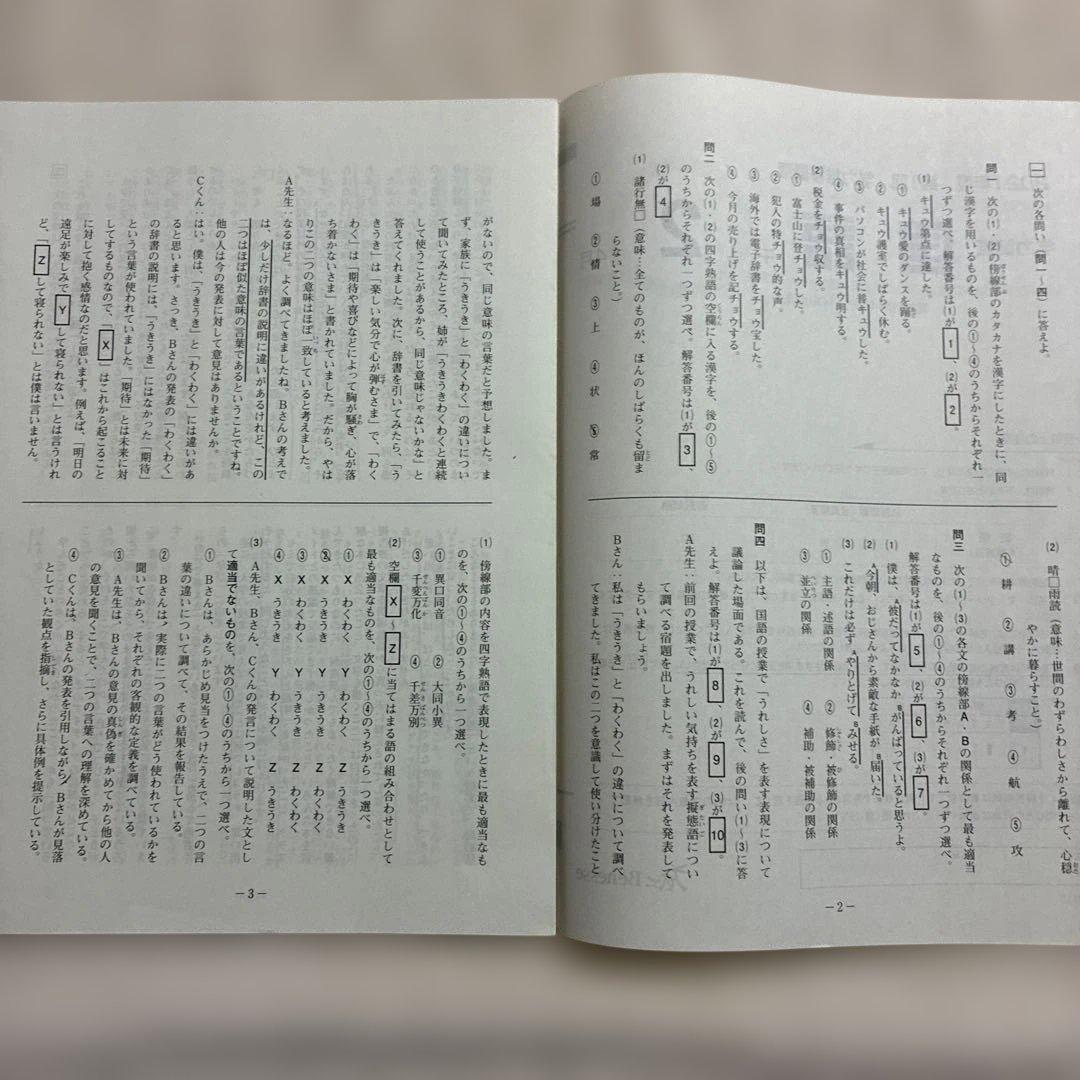 一 次の各問い(問一〜四)に答えよ。
問一 次の⑴・⑵の傍線部のカタカナを漢字にしたときに、同
じ漢字を用いるものを、後の①〜④のうちからそれぞれ一
つずつ選べ。解答番号は⑴が1、⑵が2。
⑴ キュウ第点に達した。
① キュウ愛のダンスを踊る。
② キュウ護室でしばらく休む。
③ パソコンが社会に普キュウした。
④ 事件の真相をキュウ明する。
⑵ 税金をチョウ収する。
① 富士山に登チョウした。
② 犯人の特チョウ的な声。
③ 海外では電子辞書をチョウ宝した。
④ 今月の売り上げを記チョウする。
問二 次の⑴・⑵の四字熟語の空欄に入る漢字を、後の①〜⑤
のうちからそれぞれ一つずつ選べ。解答番号は⑴が3、
⑵が4。
⑴ 諸行無□(意味…全てのものが、ほんのしばらくも留ま
らないこと。)
① 場 ② 情 ③ 上 ④ 状 ⑤ 常
⑵ 晴□雨読(意味…世間のわずらわしさから離れて、心穏
やかに暮らすこと。)
① 耕 ② 講 ③ 考 ④ 航 ⑤ 攻
問三 次の⑴〜⑶の各文の傍線部A・Bの関係として最も適当
なものを、後の①〜④のうちからそれぞれ一つずつ選べ。
解答番号は⑴が5、⑵が6、⑶が7。
⑴ 僕は、A彼だってなかなかBがんばっていると思うよ。
⑵ A今朝、おじさんから素敵な手紙がB届いた。
⑶ これだけは必ずAやりとげてBみせる。
① 主語・述語の関係 ② 修飾・被修飾の関係
③ 並立の関係 ④ 補助・被補助の関係
問四 以下は、国語の授業で「うれしさ」を表す表現について
議論した場面である。これを読んで、後の問い⑴〜⑶に答
えよ。解答番号は⑴が8、⑵が9、⑶が10。
A先生:前回の授業で、うれしい気持ちを表す擬態語につい
て調べる宿題を出しました。まずはそれを発表して
もらいましょう。
Bさん:私は「うきうき」と「わくわく」の違いについて調べ
てきました。私はこの二つを意識して使い分けたこと
−2−
がないので、同じ意味の言葉だと予想しました。ま
ず、家族に「うきうき」と「わくわく」の違いについ
て聞いてみたところ、姉が「うきうきわくわくと連続
して使うことがあるから、同じ意味じゃないかな」と
答えてくれました。次に、辞書を引いてみたら、「う
きうき」は「楽しい気分で心が弾むさま」で、「わく
わく」は「期待や喜びなどによって胸が騒ぎ、心が落
ち着かないさま」と書かれていました。だから、やは
りこの二つの意味はほぼ一致していると考えました。
A先生:なるほど。よく調べてきましたね。Bさんの考えで
は、少しだけ辞書の説明に違いがあるけれど、この
二つはほぼ似た意味の言葉であるということですね。
他の人は今の発表に対して意見はありませんか。
Cくん:はい。僕は、「うきうき」と「わくわく」には違いがあ
ると思います。さっき、Bさんの発表の「わくわく」
の辞書の説明には、「うきうき」にはなかった「期待」
という言葉が使われていました。「期待」とは未来に対
してするものなので、Xはこれから起こること
に対して抱く感情なのだと思います。例えば、「明日の
遠足が楽しみでYして寝られない」とは言うけれ
ど、Zして寝られない」とは僕は言いません。
⑴ 傍線部の内容を四字熟語で表現したときに最も適当なも
のを、次の①〜④のうちから一つ選べ。
① 異口同音 ② 大同小異
③ 千変万化 ④ 千差万別
⑵ 空欄X〜Zに当てはまる語の組み合わせとして
最も適当なものを、次の①〜④のうちから一つ選べ。
① X わくわく Y わくわく Z うきうき
② X わくわく Y うきうき Z うきうき
③ X うきうき Y うきうき Z わくわく
④ X うきうき Y わくわく Z うきうき
⑶ A先生、Bさん、Cくんの発言について説明した文とし
て適当でないものを、次の①〜④のうちから一つ選べ。
① Bさんは、あらかじめ見当をつけたうえで、二つの言
葉の違いについて調べて、その結果を報告している。
② Bさんは、実際に二つの言葉がどう使われているかを
聞いてから、それぞれの客観的な定義を調べている。
③ A先生は、Bさんの意見の真偽を確かめてから他の人
の意見を聞くことで、二つの言葉への理解を深めている。
④ Cくんは、Bさんの発表を引用しながら、Bさんが見落
としていた観点を指摘し、さらに具体例を提示している。
−3−